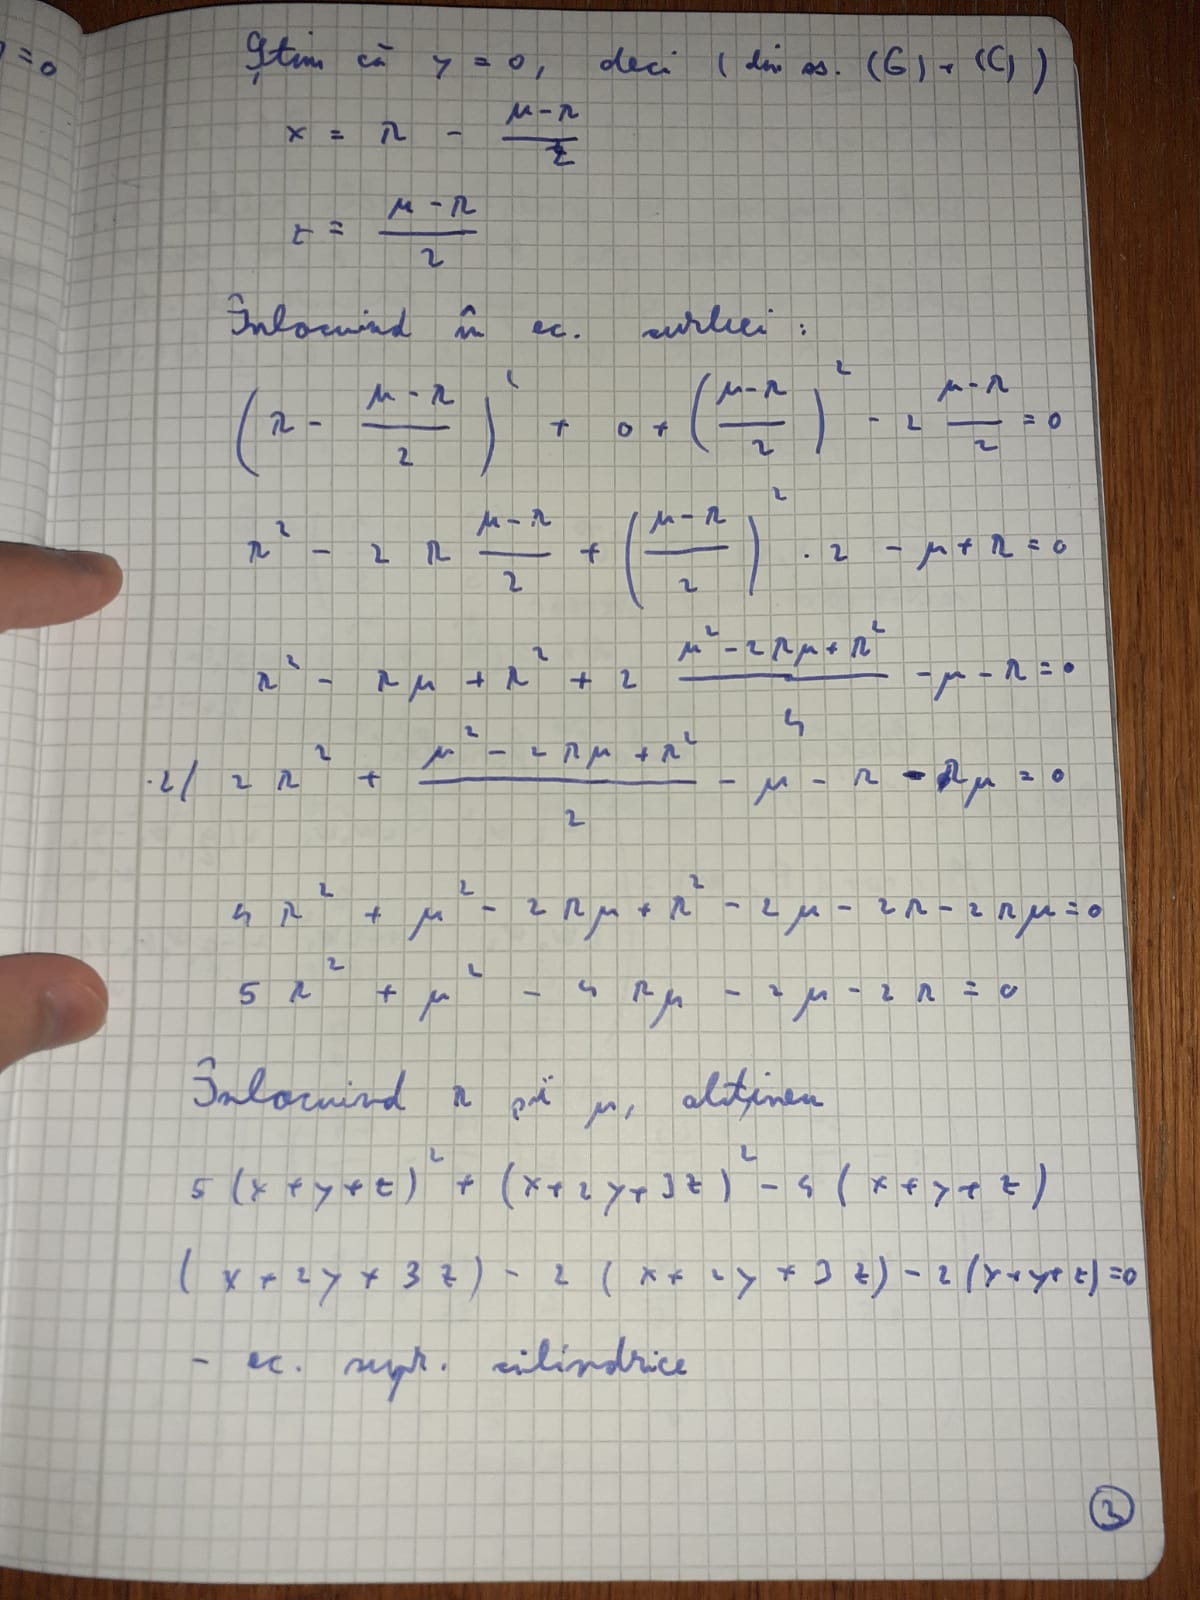 =0
Știm că y = 0, deci (din as. (G) + (C))
x = λ - (μ-λ)/2
z = (μ-λ)/2
Înlocuind în ec. curbei:
(λ - (μ-λ)/2)² + 0 + ((μ-λ)/2)² - 2 (μ-λ)/2 = 0
λ² - 2 λ (μ-λ)/2 + ((μ-λ)/2)² · 2 - μ + λ = 0
λ² - λμ + λ² + 2 (μ² - 2λμ + λ²)/4 - μ - λ = 0
·2/ 2λ² + (μ² - 2λμ + λ²)/2 - μ - λ - λμ = 0
4λ² + μ² - 2λμ + λ² - 2μ - 2λ - 2λμ = 0
5λ² + μ² - 4λμ - 2μ - 2λ = 0
Înlocuind λ și μ, obținem
5(x+y+z)² + (x+2y+3z)² - 4(x+y+z)
(x+2y+3z) - 2(x+2y+3z) - 2(x+y+z)=0
- ec. supr. cilindrice
3